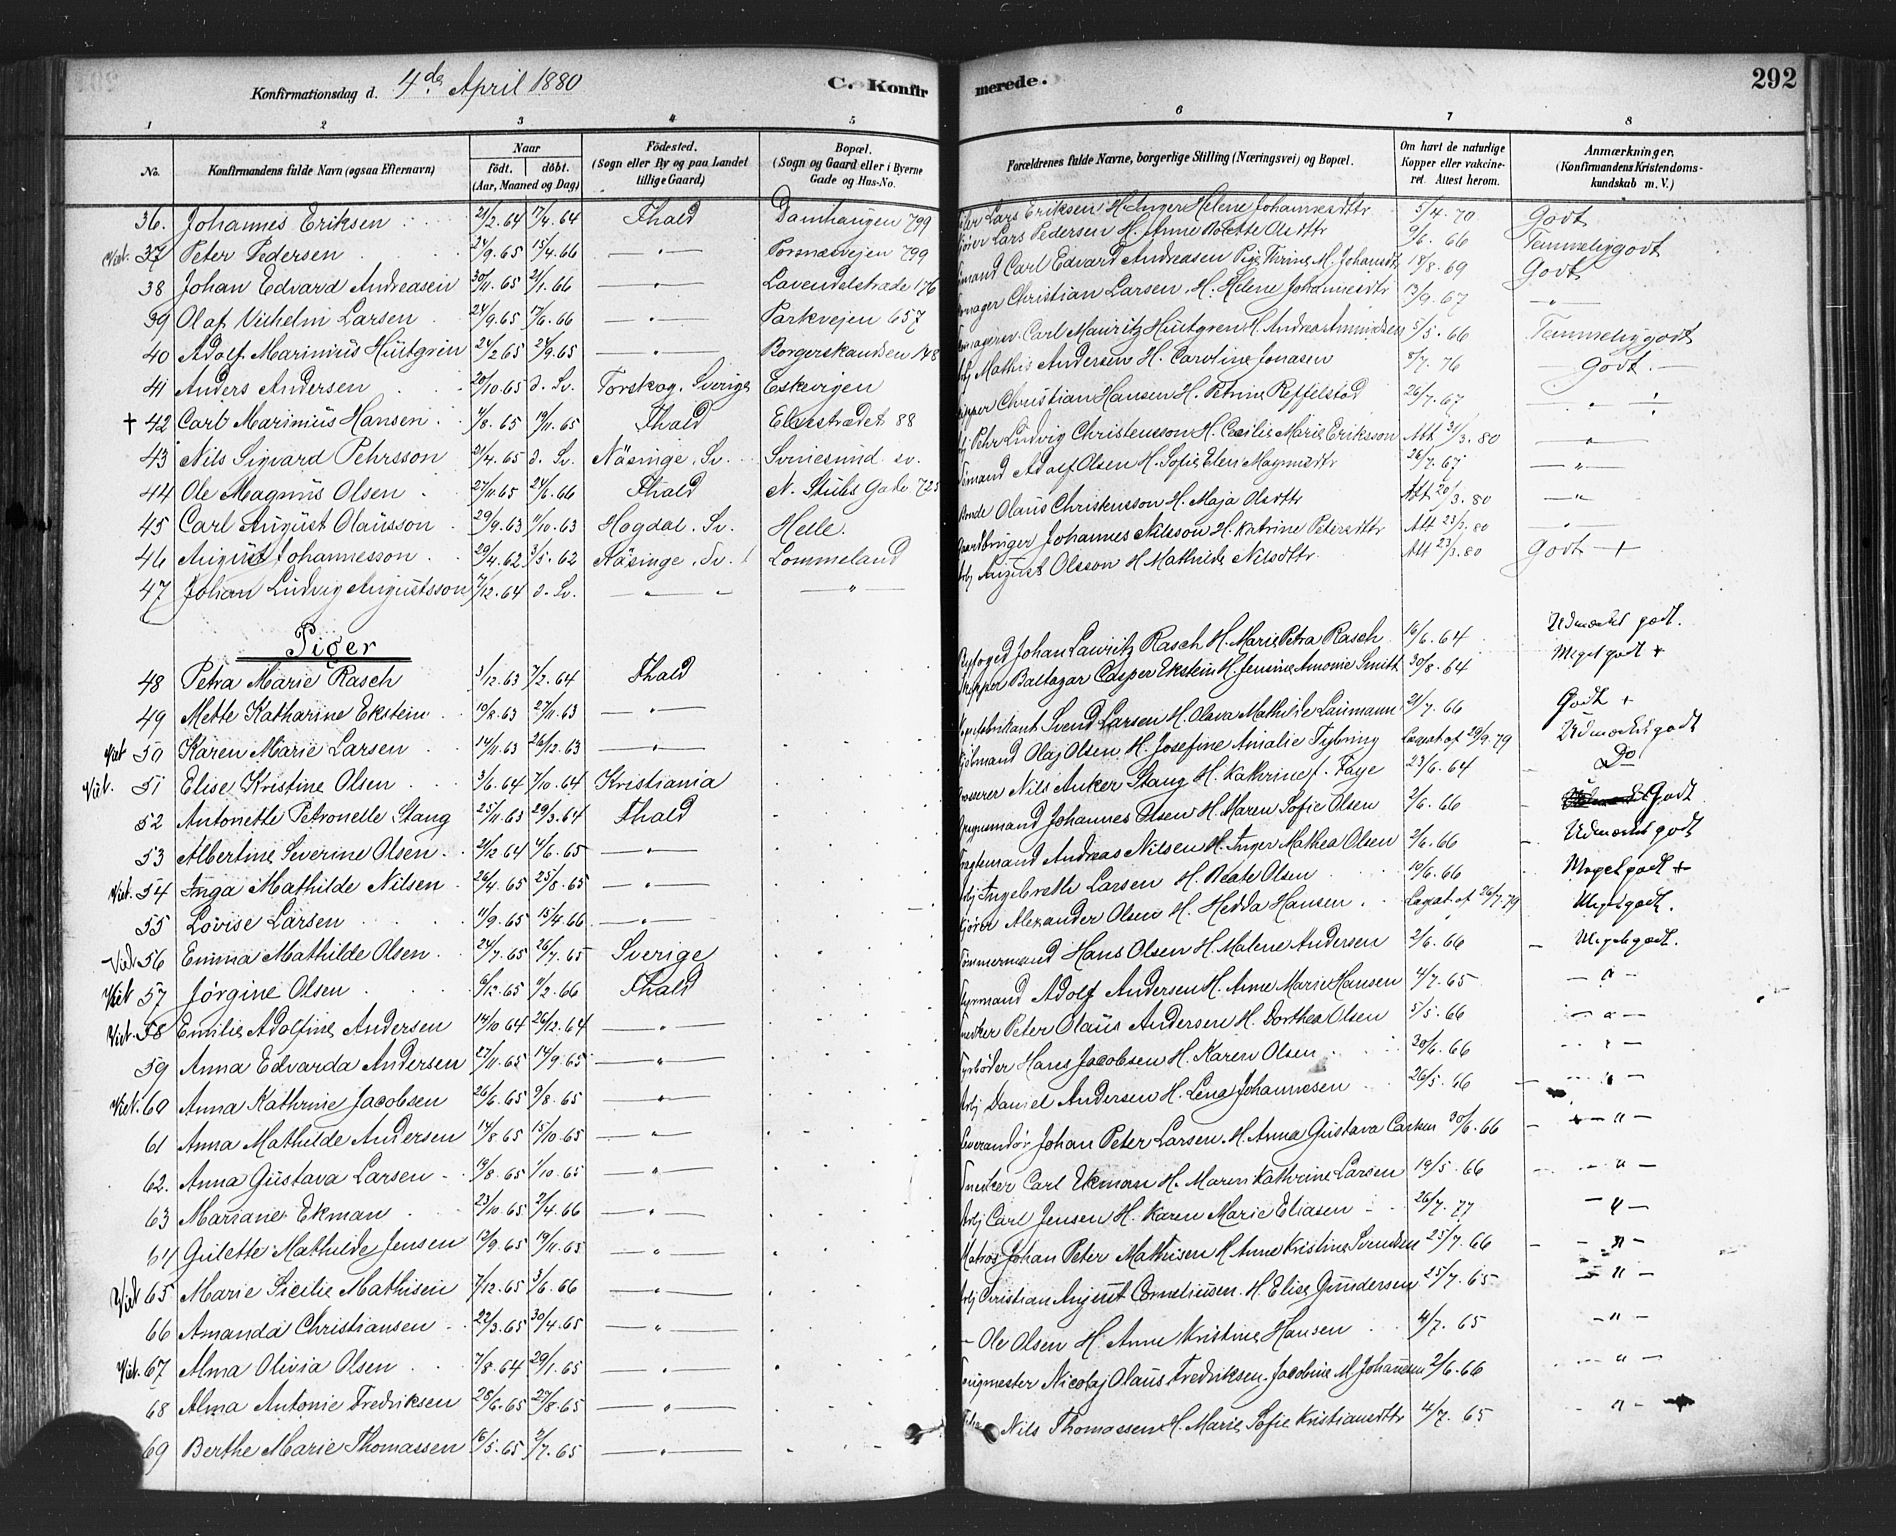 Konfirmationsdag d. 4de April 1880
C. Konfirmerede.
292
1 2 3 4 5 6 7 8
No. Konfirmandens fulde Navn (ogsaa Efternavn) Naar født. døbt. (Aar, Maaned og Dag) Födested. (Sogn eller By og paa Landet tillige Gaard) Bopæl. (Sogn og Gaard eller i Byerne Gade og Hus-No. Forældrenes fulde Navne, borgerlige Stilling (Næringsvei) og Bopæl. Om havt de naturlige Kopper eller vakcineret. Attest herom. Anmærkninger. (Konfirmandens Kristendomskundskab m. V.)
36. Johannes Eriksen 21/2.64 17/4.64 Fhald Damhaugen 799 Lars Eriksen H. Inger Helene Johannesdtr 5/4.70 Godt
37 Peter Pedersen 24/9.65 15/4.66 —"— 799 Lars Pedersen H. Anne Bolette Olsdttr 9/6.66 Temmelig godt
38 Johan Edvard Andreasen 30/11.65 2/1.66 —"— Lavendelstræde 176 Carl Edvard Andreasen Pige Thrine M. Johansdtr 18/8.69 Godt
39 Olaf Vilhelm Larsen 24/9.65 17/6.66 —"— Parkvejen 657 Christian Larsen H. Helene Johannesdtr 13/9.67 —"—
40 Adolf Marinius Hultgren 24/2.65 24/9.65 —"— Borgerskandsen Carl Mauritz Hultgren H. Andrea Amundsen 5/5.66 Temmelig godt
41 Anders Andersen 20/10.65 d. Sv. Torskog. Sverige Eskevigen Mathis Andersen H. Caroline Jonasen 8/7.76 Godt.
† 42 Carl Marinius Hansen 1/8.65 19/11.65 Fhald Elvestrædet 88 Christian Hansen H. Petrine Reffelstad 26/7.67 —"—
43 Nils Sigvard Pehrsson 21/4.65 d. Sv. Näsinge. Sv. Svinesund sv. Pehr Ludvig Christensson H. Cecilie Marie Eriksson Att 31/3.80 —"—
44 Ole Magnus Olsen 27/11.65 24/6.66 Fhald N. Stubs Gade 725 Adolf Olsen H. Sofie Elen Magnusdtr 26/7.67 —"—
45 Carl August Olausson 29/9.63 4/10.63 Hogdal. Sv. Helle. Olaus Christensson H. Maja Olsdttr Att 20/3.80 —"—
46 August Johannesson 29/4.62 3/5.62 Näsinge. Sv. Lommeland Johannes Nilsson H. Katrine Petersdttr Att 23/3.80 —"—
47 Johan Ludvig Augustsson 7/12.64 d. Sv. —"— —"— August Olsson H. Mathilde Nilsdttr. Att 23/3.80 Godt +
Piger
48 Petra Marie Rasch 3/12.63 7/2.64 Fhald Johan Lauritz Rasch H. Marie Petra Rasch 16/6.64 Udmærket godt.
49 Mette Katharine Ekstein 19/8.63 27/11.63 —"— Baltazar Casper Ekstein H. Jensine Amonie Smith 30/8.64 Meget godt +
Viet 50 Karen Marie Larsen 14/11.63 26/12.63 —"— Svend Larsen H. Olava Mathilde Laumann 21/7.66 Godt +
Viet. 51 Elise Kristine Olsen 3/6.64 7/10.64 Kristiania Olaj Olsen H. Josefine Amalie Fybring 29/9.79 Udmærket godt
52 Antonette Petronelle Stang 25/11.63 29/3.64 Fhald Nils Anker Stang H. Kathrine f. Faye 23/6.64 Do
53 Albertine Severine Olsen 21/12 64 4/6.65 —"— Johannes Olsen H. Maren Sofie Olsen 2/6.66 Godt
Viet. 54 Inga Mathilde Nilsen 26/4.65 25/8.65 —"— Andreas Nilsen H. Inger Mathea Olsen 2/6.66 Udmærket godt
55 Lovise Larsen 11/9.65 15/4.66 —"— Ingebreth Larsen H. Beate Olsen 19/6.66 Meget godt +
56 Emma Mathilde Olsen 24/7.65 26/7.65 Sverige Alexander Olsen H. Hedda Hansen 26/7.79 Meget godt.
Viet 57 Jørgine Olsen 6/12.65 11/2.66 Fhald Tømmermand Hans Olsen H. Malene Andersen 2/6.66 Meget godt.
Viet. 58 Emilie Adolfine Andersen 14/10 64 26/12.64 —"— Styrmand Adolf Andersen H. Anne Marie Hansen 4/7.65 —"—
59 Anna Edvarda Andersen 27/11.65 14/9.65 —"— Peter Olaus Andersen H. Dorthea Olsen 5/5.66 —"—
Viet. 60 Anna Kathrine Jacobsen 26/6.65 9/8.65 —"— Fyrbøder Hans Jacobsen H. Karen Olsen 20/6.66 —"—
61 Anna Mathilde Andersen 14/8 65 15/10.65 —"— Arbj Daniel Andersen H. Lena Johannesen 26/5.66 —"—
62. Anna Gustava Larsen 19/8.65 1/10.65 —"— Leverandør Johan Peter Larsen H. Anna Gustava 30/6.66 —"—
63 Mariane Ekman 23/10.65 2/4.66 —"— Snedker Carl Ekman H. Maren Kathrine Larsen 19/5.66 —"—
64 Gulette Mathilde Jensen 12/9.65 19/11.65 —"— Arbj Carl Jensen H. Karen Marie Eliasen 26/7.77 —"—
Viet 65 Marie Sicilie Mathisen 7/12.65 3/6.66 —"— Matros Johan Peter Mathisen H Anne Kristine Svendsen 25/7.66 —"—
66 Amanda Christiansen 22/3.65 30/4.65 —"— Arbj Christian August Corneliusen. H. Elise Gundersen 25/7.65 —"—
Viet. 67 Alma Olivia Olsen 7/8.64 29/1.65 —"— Ole Olsen H. Anne Kristine Hansen 4/7.65 —"—
68 Alma Antonie Fredriksen 28/6.65 27/8.65 —"— Nicolaj Olaus Fredriksen. Jacobine M Johansen 2/6.66 —"—
69 Berthe Marie Thomassen 16/5.65 2/7.65 —"— Nils Thomassen H. Marie Sofie Kristiansdttr 4/7.65 —"—